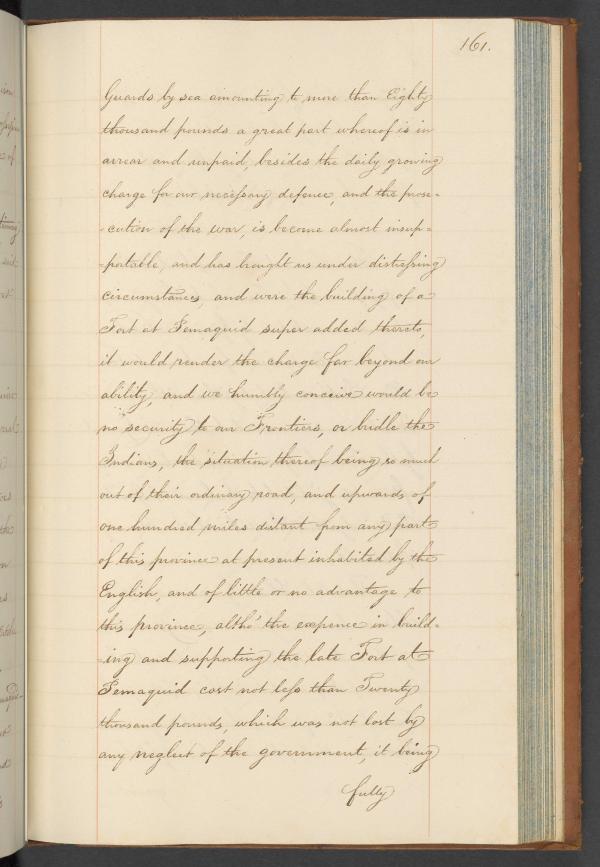 161.
Guards by sea amounting to more than Eighty
thousand pounds a great part whereof is in
arrear and unpaid, besides the daily growing
charge for our necessary defence, and the prose-
-cution of the war, is become almost insup=
=portable, and has brought us under distressing
circumstances, and were the building of a
Fort at Pemaquid super added thereto,
it would render the charge far beyond our
ability, and we humbly conceive would be
no security to our Frontiers, or bridle the
Indians, the situation thereof being so much
out of their ordinary road, and upwards of
one hundred miles distant from any part
of this province at present inhabited by the
English, and of little or no advantage to
this province, altho' the expence in build=
=ing and supporting the late Fort at
Pemaquid cost not less than Twenty
thousand pounds, which was not lost by
any neglect of the government, it being
fully